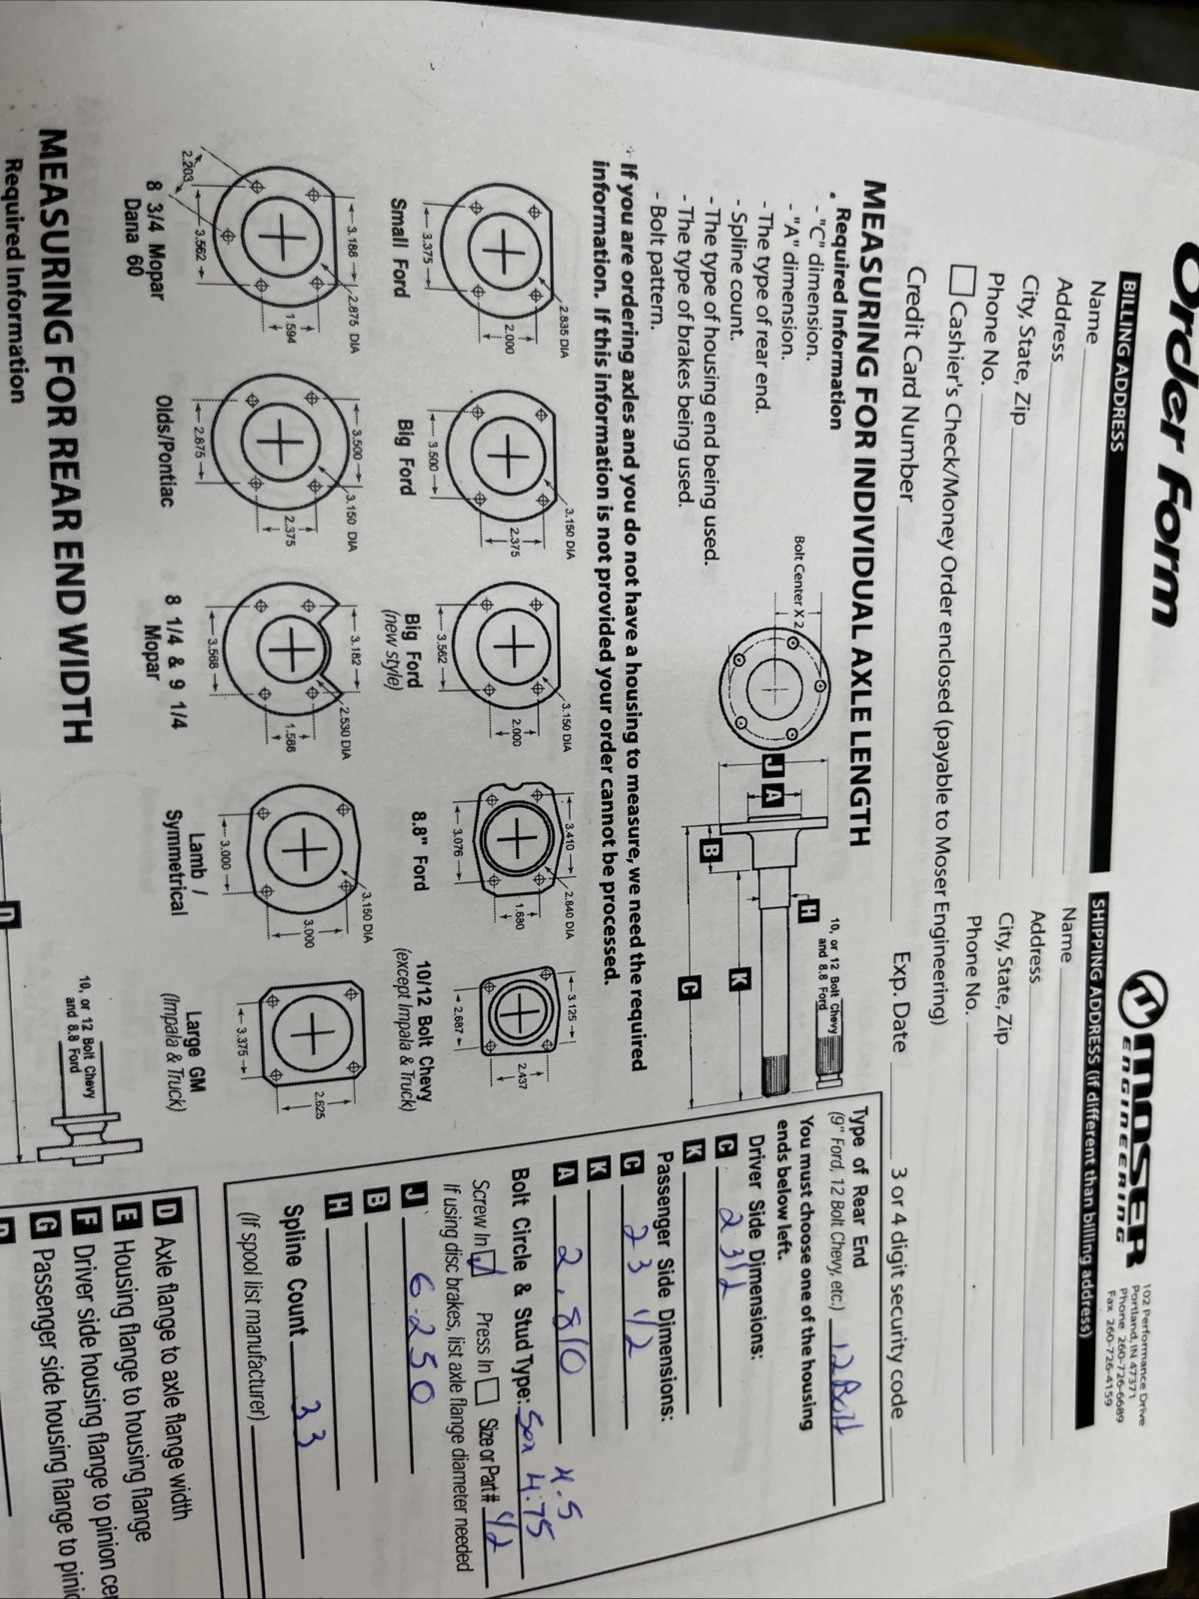 Order Form
MOSER
ENGINEERING
102 Performance Drive
Portland, IN 47371
Phone 260-726-6689
Fax 260-726-4159
BILLING ADDRESS
SHIPPING ADDRESS (if different than billing address)
Name
Name
Address
Address
City, State, Zip
City, State, Zip
Phone No.
Phone No.
Cashier's Check/Money Order enclosed (payable to Moser Engineering)
Credit Card Number
Exp. Date
3 or 4 digit security code
MEASURING FOR INDIVIDUAL AXLE LENGTH
• Required Information
- "C" dimension.
- "A" dimension.
- The type of rear end.
- Spline count.
- The type of housing end being used.
- The type of brakes being used.
- Bolt pattern.
Bolt Center X 2
J
A
B
H
K
C
10, or 12 Bolt Chevy
and 8.8 Ford
If you are ordering axles and you do not have a housing to measure, we need the required
information. If this information is not provided your order cannot be processed.
2.835 DIA
2.000
3.375
Small Ford
3.150 DIA
2.375
3.500
Big Ford
3.150 DIA
2.000
3.562
Big Ford
(new style)
3.410
2.840 DIA
1.680
3.076
8.8" Ford
3.125
2.437
2.687
10/12 Bolt Chevy
(except Impala & Truck)
3.188
2.875 DIA
1.594
3.562
2.203
8 3/4 Mopar
Dana 60
3.500
3.150 DIA
2.375
2.875
Olds/Pontiac
3.182
2.530 DIA
1.588
3.568
8 1/4 & 9 1/4
Mopar
3.150 DIA
3.000
3.000
Lamb /
Symmetrical
2.625
3.375
Large GM
(Impala & Truck)
Type of Rear End
(9" Ford, 12 Bolt Chevy, etc.) 12 Bolt
You must choose one of the housing
ends below left.
Driver Side Dimensions:
C
K
Passenger Side Dimensions:
C 23 1/2
K
A 2.810
Bolt Circle & Stud Type: 5on 4.75
x.5
Screw In Press In Size or Part# 1/2
If using disc brakes, list axle flange diameter needed
J 6.250
B
H
Spline Count 33
(If spool list manufacturer)
MEASURING FOR REAR END WIDTH
Required Information
10, or 12 Bolt Chevy
and 8.8 Ford
D
D Axle flange to axle flange width
E Housing flange to housing flange
F Driver side housing flange to pinion ce
G Passenger side housing flange to pini